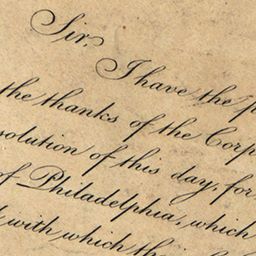 Sir,
I have the
the thanks of the Corp
solution of this day, for
of Philadelphia, which
with which the